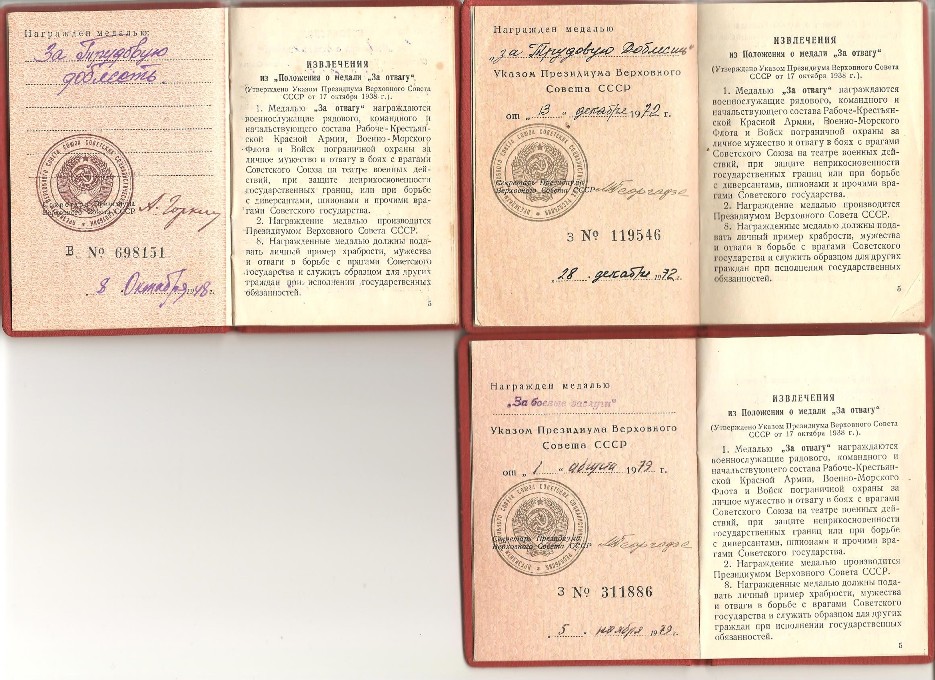 Награжден медалью
За Трудовую
доблесть
Секретарь Президиума
Верховного Совета СССР
А. Горкин
В № 698151
8 Октября 1948 г.
ИЗВЛЕЧЕНИЯ
из „Положения о медали „За отвагу“
(Утверждено Указом Президиума Верховного Совета
СССР от 17 октября 1938 г.).
1. Медалью „За отвагу“ награждаются
военнослужащие рядового, командного и
начальствующего состава Рабоче-Крестьян-
ской Красной Армии, Военно-Морского
Флота и Войск пограничной охраны за
личное мужество и отвагу в боях с врагами
Советского Союза на театре военных дей-
ствий, при защите неприкосновенности
государственных границ, или при борьбе
с диверсантами, шпионами и прочими вра-
гами Советского государства.
2. Награждение медалью производится
Президиумом Верховного Совета СССР.
8. Награжденные медалью должны пода-
вать личный пример храбрости, мужества
и отваги в борьбе с врагами Советского
государства и служить образцом для других
граждан при исполнении государственных
обязанностей.
5
Награжден медалью
„за Трудовую Доблесть"
Указом Президиума Верховного
Совета СССР
от „ 13 „ декабря 1972 г.
Секретарь Президиума
Верховного Совета СССР
З № 119546
28 декабря 1972 г.
ИЗВЛЕЧЕНИЯ
из Положения о медали „За отвагу“
(Утверждено Указом Президиума Верховного Совета
СССР от 17 октября 1938 г.).
1. Медалью „За отвагу“ награждаются
военнослужащие рядового, командного и
начальствующего состава Рабоче-Крестьян-
ской Красной Армии, Военно-Морского
Флота и Войск пограничной охраны за
личное мужество и отвагу в боях с врагами
Советского Союза на театре военных дей-
ствий, при защите неприкосновенности
государственных границ или при борьбе
с диверсантами, шпионами и прочими вра-
гами Советского государства.
2. Награждение медалью производится
Президиумом Верховного Совета СССР.
8. Награжденные медалью должны пода-
вать личный пример храбрости, мужества
и отваги в борьбе с врагами Советского
государства и служить образцом для других
граждан при исполнении государственных
обязанностей.
5
Награжден медалью
„За боевые заслуги"
Указом Президиума Верховного
Совета СССР
от „ 1 „ августа 1979 г.
Секретарь Президиума
Верховного Совета СССР
З № 311886
5 ноября 1979 г.
ИЗВЛЕЧЕНИЯ
из Положения о медали „За отвагу“
(Утверждено Указом Президиума Верховного Совета
СССР от 17 октября 1938 г.).
1. Медалью „За отвагу“ награждаются
военнослужащие рядового, командного и
начальствующего состава Рабоче-Крестьян-
ской Красной Армии, Военно-Морского
Флота и Войск пограничной охраны за
личное мужество и отвагу в боях с врагами
Советского Союза на театре военных дей-
ствий, при защите неприкосновенности
государственных границ или при борьбе
с диверсантами, шпионами и прочими вра-
гами Советского государства.
2. Награждение медалью производится
Президиумом Верховного Совета СССР.
8. Награжденные медалью должны пода-
вать личный пример храбрости, мужества
и отваги в борьбе с врагами Советского
государства и служить образцом для других
граждан при исполнении государственных
обязанностей.
5